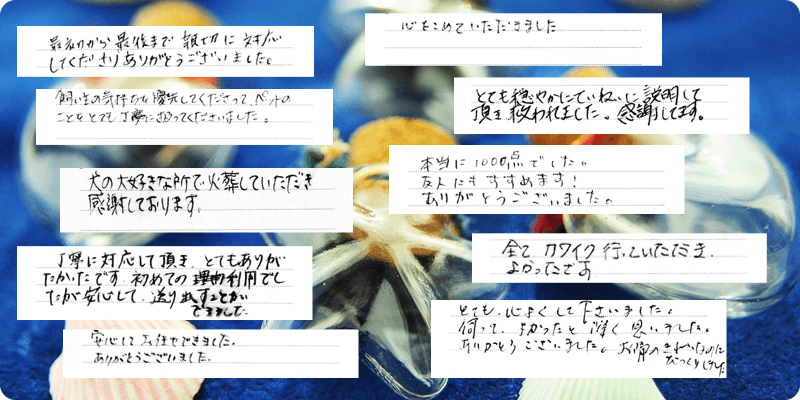 最初から最後まで親切に対応
してくださりありがとうございました。
飼い主の気持ちを優先してくださって、ペットの
こともとても丁寧に扱ってくださいました。
犬の大好きな所で火葬していただき
感謝しております。
丁寧に対応して頂き、とてもありが
たかったです。初めての利用でし
たが安心して、送り出すことが
できました。
安心してお任せできました。
ありがとうございました。
心をこめていただきました
とても穏やかにていねいに説明して
頂き救われました。感謝してます。
本当に1000点でした。
友人にもすすめます!
ありがとうございました。
全て カワイク 行っていただき
よかったです
とても、心よくして下さいました。
伺って、よかったと深く思いました。
ありがとうございました。お骨のきれいなのに
びっくりしました